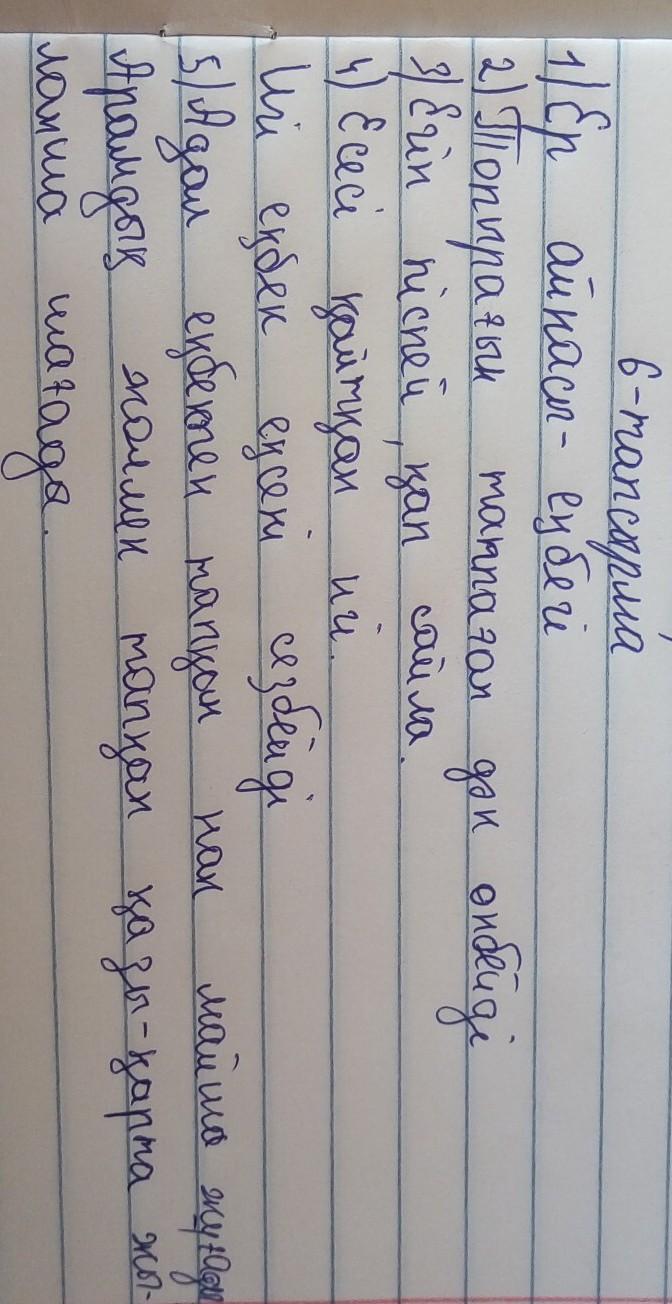 6-тапсырма
1) Ер айнасы - еңбегі
2) Топырағын таппаған дән өнбейді
3) Егін піспей, қап сайла.
4) Есесі қайтқан игі.
Игі еңбек ексені сезбейді
5) Адал еңбекпен тапқан нан майша жұғады
Арамдық жолмен тапқан қазы-қарта жы-
ланша шағады.